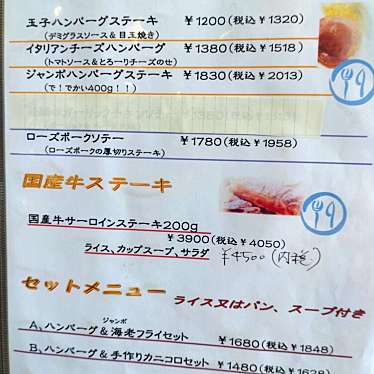 玉子ハンバーグステーキ ￥1200(税込￥1320)
(デミグラスソース＆目玉焼き)
イタリアンチーズハンバーグ ￥1380(税込￥1518)
(トマトソース＆とろーりチーズのせ)
ジャンボハンバーグステーキ ￥1830(税込￥2013)
(で！でかい400g！！)
ローズポークソテー ￥1780(税込￥1958)
(ローズポークの厚切りステーキ)
国産牛ステーキ
国産牛サーロインステーキ200g
￥3900(税込￥4050)
ライス、カップスープ、サラダ ￥4500(内税)
セットメニュー
ライス又はパン、スープ付き
ジャンボ
A、ハンバーグ＆海老フライセット ￥1680(税込￥1848)
B、ハンバーグ＆手作りカニコロセット ￥1480(税込￥1628)